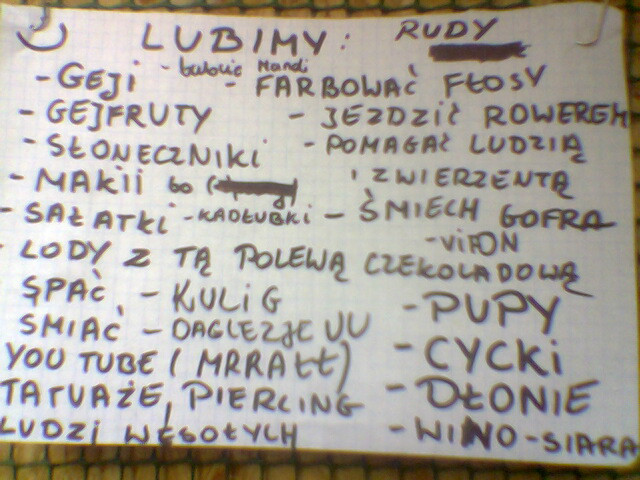 LUBIMY: RUDY
- GEJI - babcie Mandi - FARBOWAĆ FŁOSY
- GEJFRUTY - JEŹDZIĆ ROWEREM
- SŁONECZNIKI - POMAGAĆ LUDZIĄ
- MAKII bo ( ) I ZWIERZENTĄ
- SAŁATKI - KADŁUBKI - ŚMIECH GOFRA
- VIFON
- LODY Z TĄ POLEWĄ CZEKOLADOWĄ
SPAĆ - KULIG - PUPY
SMIAĆ - DAGLEZJE UU
YOU TUBE (MRRAŁŁ) - CYCKI
TATUAŻE, PIERCING - DŁONIE
LUDZI WESOŁYCH - WINO - SIARA